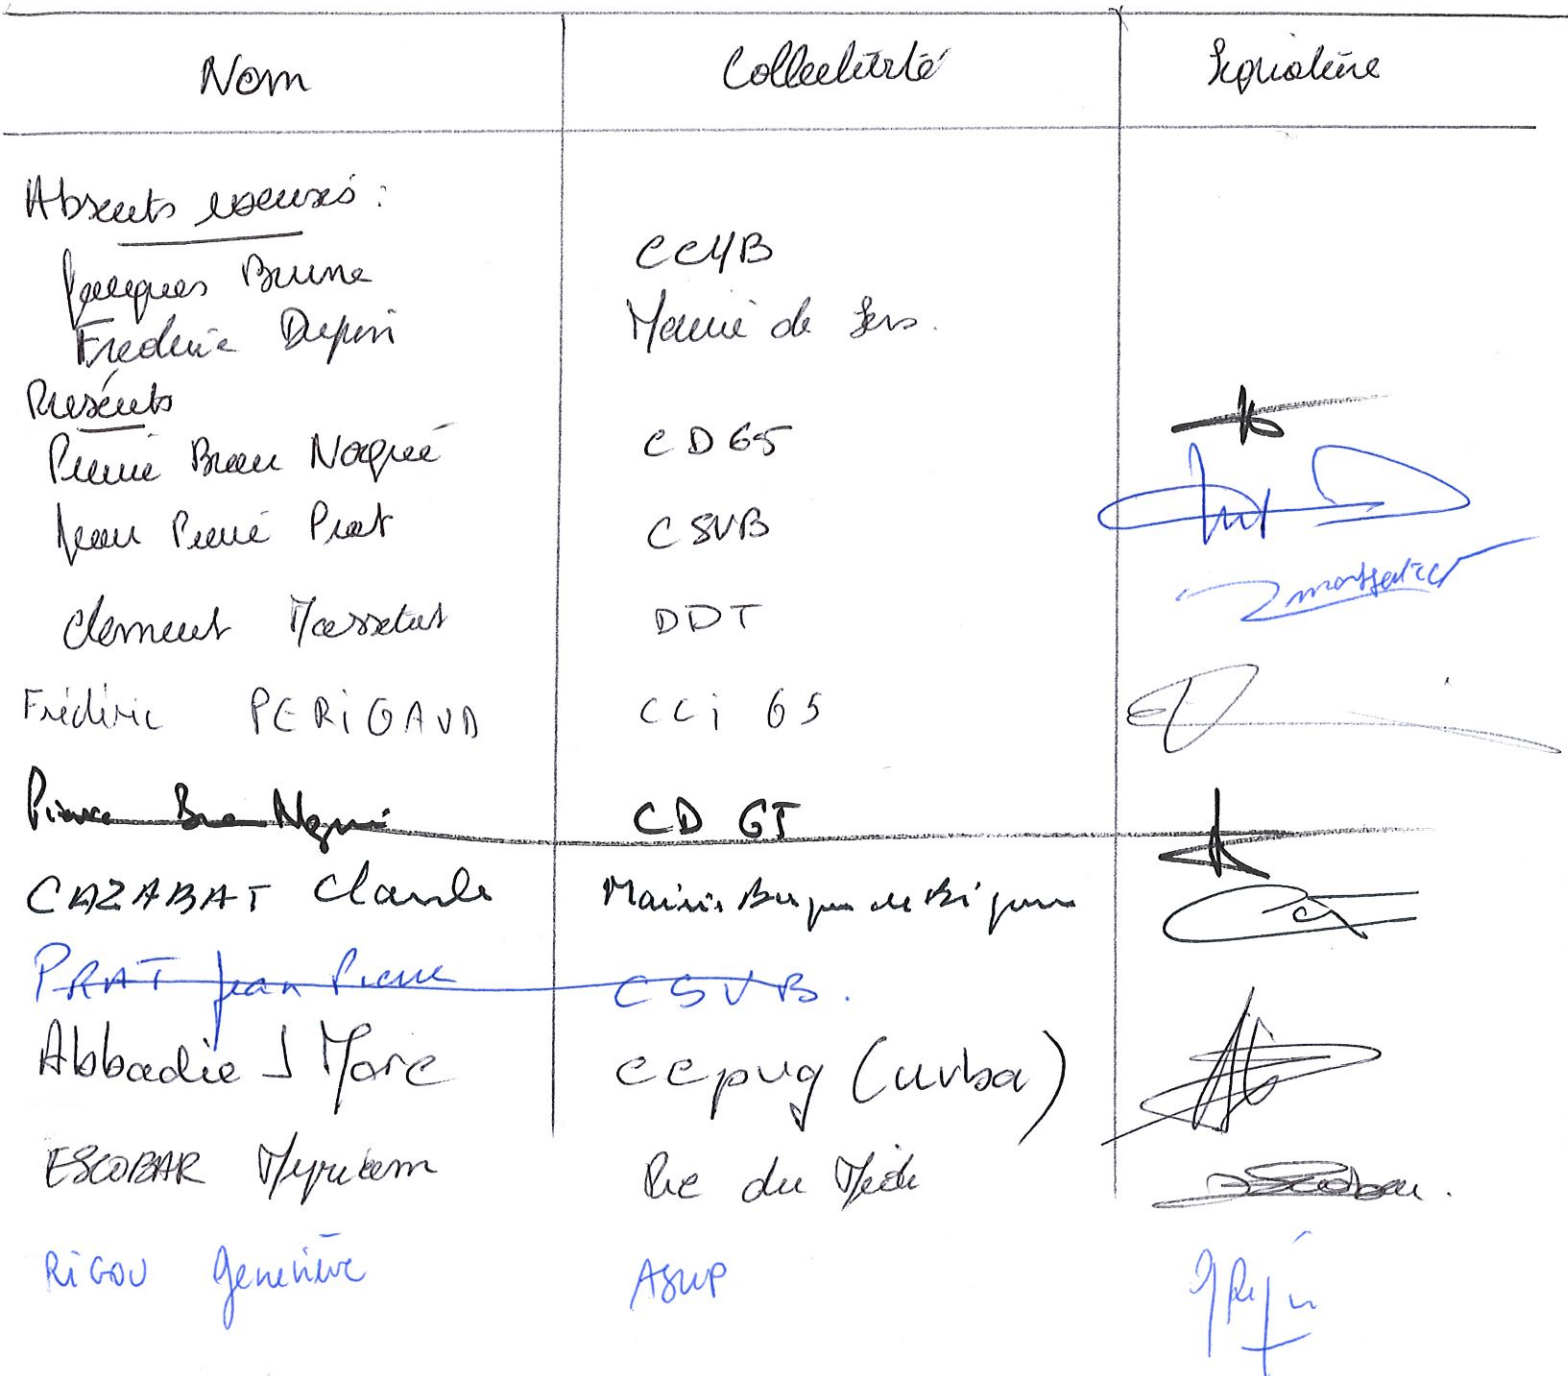 Nom Collectivité Signature
Absents excusés :
Jacques Brune CCHB
Frédéric Mairie de Sers.
Présents
Pierre Brau Nogué CD65
Jean Pierre Prat CSVB
Clement Massatut DDT
Frédéric PERIGAUD CCi 65
Pierre Bra Nogué CD 65
CAZABAT Claude Mairie de Bigorre
PRAT Jean Pierre CSVB.
Abbadie J Marc CCPVG (urba)
ESCOBAR Myriam Pic du Midi
RIGOU Geneviève